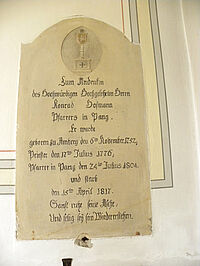 Zum Andenken
des Hochwürdigen Hochgelehrten Herrn
Konrad Hofmann
Pfarrers in Pang.
Er wurde
geboren zu Amberg den 6ten November 1752,
Priester den 17ten Julius 1776,
Pfarrer in Pang den 24ten Julius 1804
und starb
den 15ten April 1817.
Sanft ruhe seine Asche,
Und selig sey sein Wiedererstehen.